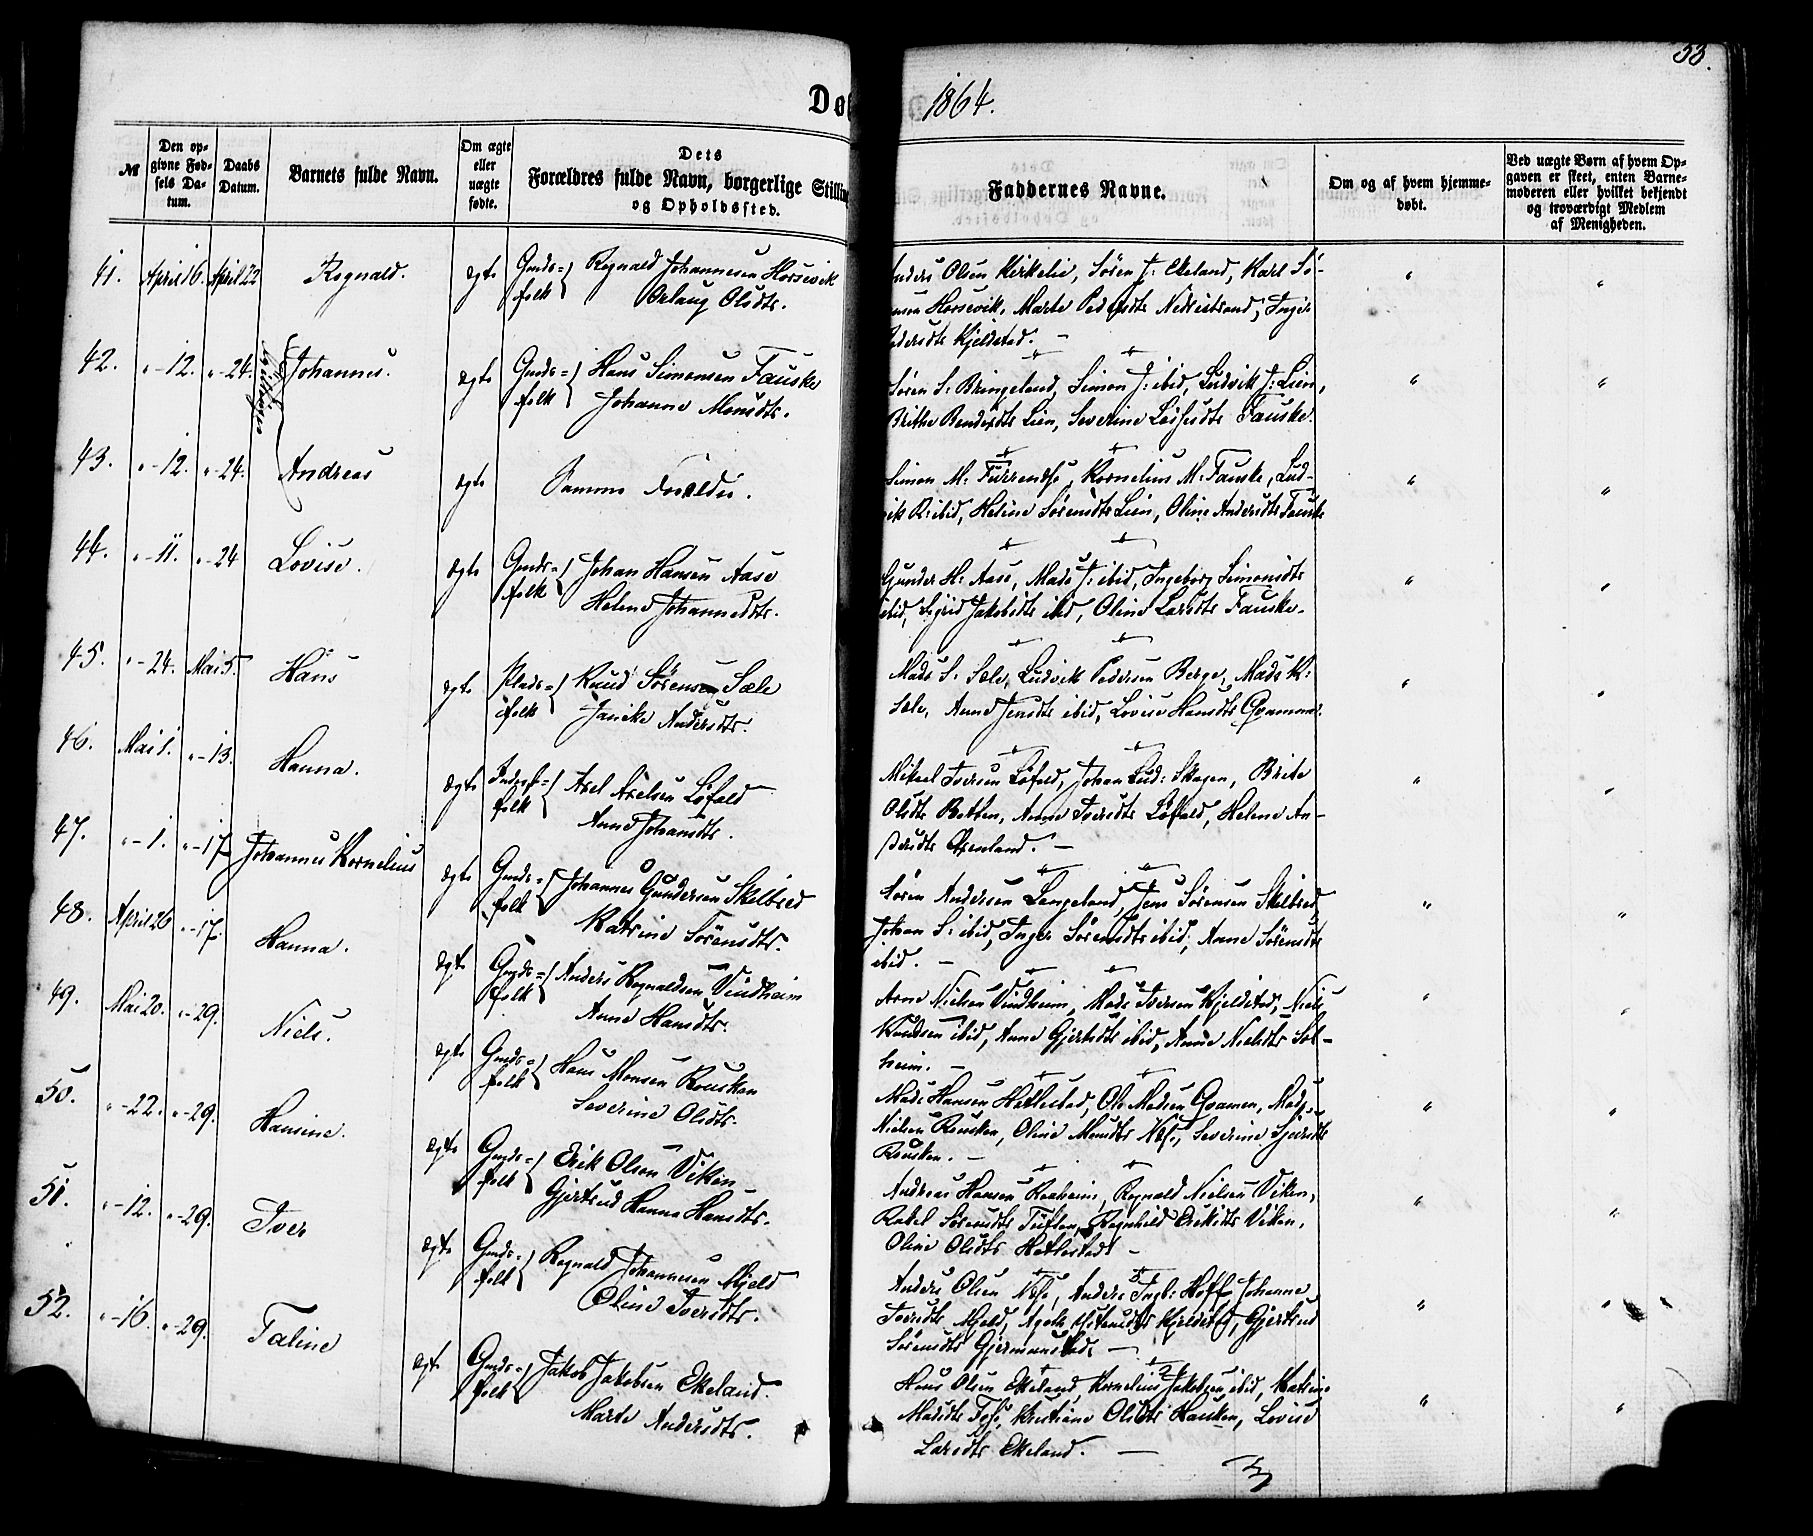 Dø
1864.
53.
№
Den op-
givne Fød-
sels Da-
tum.
Daabs
Datum.
Barnets fulde Navn.
Om ægte
eller
uægte
fødte.
Dets
Forældres fulde Navn, borgerlige Stillin
og Opholdssted.
Faddernes Navne.
Om og af hvem hjemme-
døbt.
Ved uægte Børn af hvem Op-
gaven er skeet, enten Barne-
moderen eller hvilket bekjendt
og troværdigt Medlem
af Menigheden.
41. April 16. April 22 Rognald. ægte Gmds- folk { Rognald Johannesen Horsevik
Orlaug Olsdtr.
nders Olsen Kirkelie, Søren J: Ekeland, Karl Sö-
nsen Horsevik, Marte Pedersdtr Nedreistrand, Inger
edersdtr Kjelstad. —
42. " - 12. " - 24. Johannes. ægte Gmds- folk { Hans Simonsen Fauske
Johanne Monsdtr.
Søren S: Bringeland, Simon J: ibid, Ludvik J: Lien,
Brithe Bendixdtr Lien, Severine Fauske.
43. " - 12. " - 24. Andreas ægte Samme Forældre.
Simon M: Kornelius M: Fauske, Lud-
vik R: ibid, Heline Sörensdtr Lien, Oline Andersdtr Fauske
44. " - 11. " - 24 Lovise. ægte Gmds- folk { Johan Hansen Aase
Helene Johannesdtr.
Gunder H: Aase, Mads J: ibid, Ingeborg Simonsdtr
ibid, Sigrid Jakobsdtr ibid, Oline Larsdtr Fauske.
45. " - 24. Mai 5. Hans ægte Plads- folk { Knud Sörensen Sæle
Janike Andersdtr.
Mads S. Sæle, Ludvik Pedersen Berge, Mads K:
Sæle, Anne Jensdtr ibid, Lovise Hansdtr Qvammen.
46. Mai 1. " - 13. Hanna. ægte folk { Axel Axelsen Löfald
Anne Johansdtr.
Mikael Iversen Löfald, Johan Lud: Skagen, Brite
Olsdtr Botten, Anne Iversdtr Löfald, Helene An-
dersdtr —
47. " - 1. " - 17. Johannes Kornelius ægte Gmds- folk { Johannes Gundersen Skilbred
Katrine Sörensdtr.
Sören Andersen Langeland, Jens Sörensen Skilbred,
Johan S: ibid, Inger Sörensdtr ibid, Anne Sörensdtr
ibid. —
48. April 26 " - 17. Hanna. ægte Gmds- folk { Anders Rognaldsen Vindheim
Anne Hansdtr.
Arne Nielsen Vindheim, Mads Iversen Kjeldstad, Niels
Knudsen ibid, Anne Gjertsdtr ibid, Anne Nielsdtr Sol-
heim. —
49. Mai 20. " - 29. Niels. ægte Gmds- folk { Hans Monsen Rousken
Severine Olsdtr.
Mads Hansen Hatlestad, Ole Madsen Qvamen, Mads
Nielsen Rousken, Oline Monsdtr Næse, Severine Sjursdtr
Rousken. —
50. " - 22. " - 29. Hansine. ægte Gmds- folk { Erik Olsen Viken
Gjertrud Hanna Hansdtr.
Andreas Hansen Reeheim, Rognald Nielsen Viken,
Rakel Sörensdtr Tuften, Ragnhild Eriksdtr Viken,
Oline Olsdtr Hatlestad —
51. " - 12. " - 29. Iver ægte Gmds- folk { Rognald Johannesen Mjeld
Oline Iversdtr.
Anders Olsen Næse, Anders Ingb: Hoff, Johanne
Iversdtr Mjeld, Agate Kjeldstad, Gjertrud
Sörensdtr Gjermundstad, —
52. " - 16. " - 29. Taline ægte Gmds- folk { Jakob Jakobsen Ekeland.
Marte Andersdtr.
Hans Olsen Ekeland, Kornelius Jakobsen ibid, Martine
Madsdtr Fosse, Kristiane Olsdtr Hauken, Lovise
Larsdtr Ekeland. —